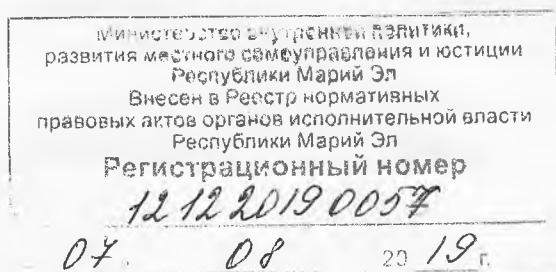 Министерство внутренней политики,
развития местного самоуправления и юстиции
Республики Марий Эл
Внесен в Реестр нормативных
правовых актов органов исполнительной власти
Республики Марий Эл
Регистрационный номер
121220190057
07. 08 20 19 г.